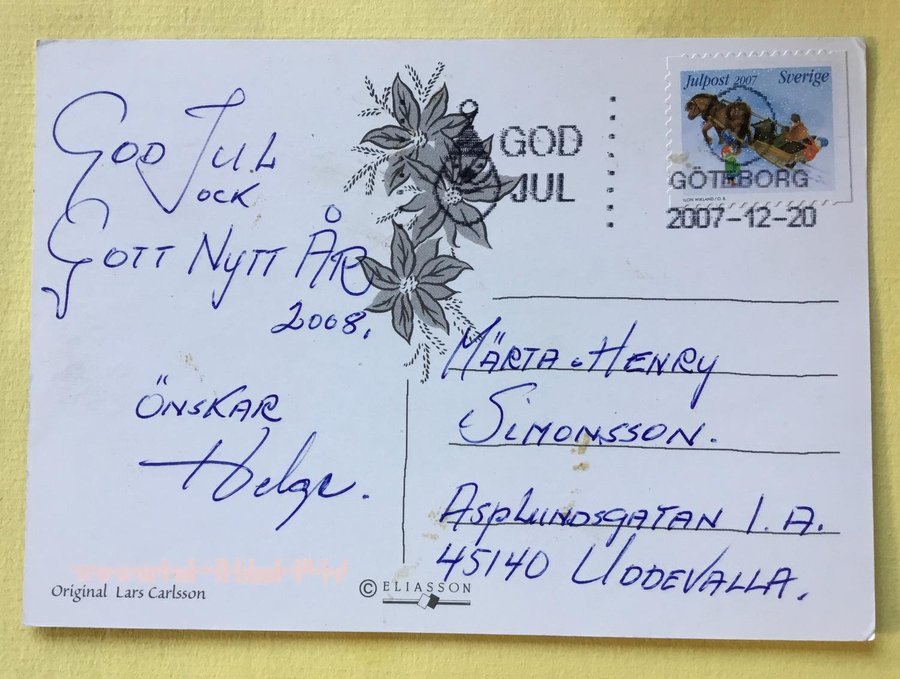 GOD JUL
OCK
GOTT NYTT ÅR
2008.
ÖNSKAR
Helge.
Original Lars Carlsson
© ELIASSON
GOD
JUL
Julpost 2007 Sverige
GÖTEBORG
2007-12-20
MÄRTA o HENRY
SIMONSSON.
ASPLUNDSGATAN 1. A.
45140 UDDEVALLA.